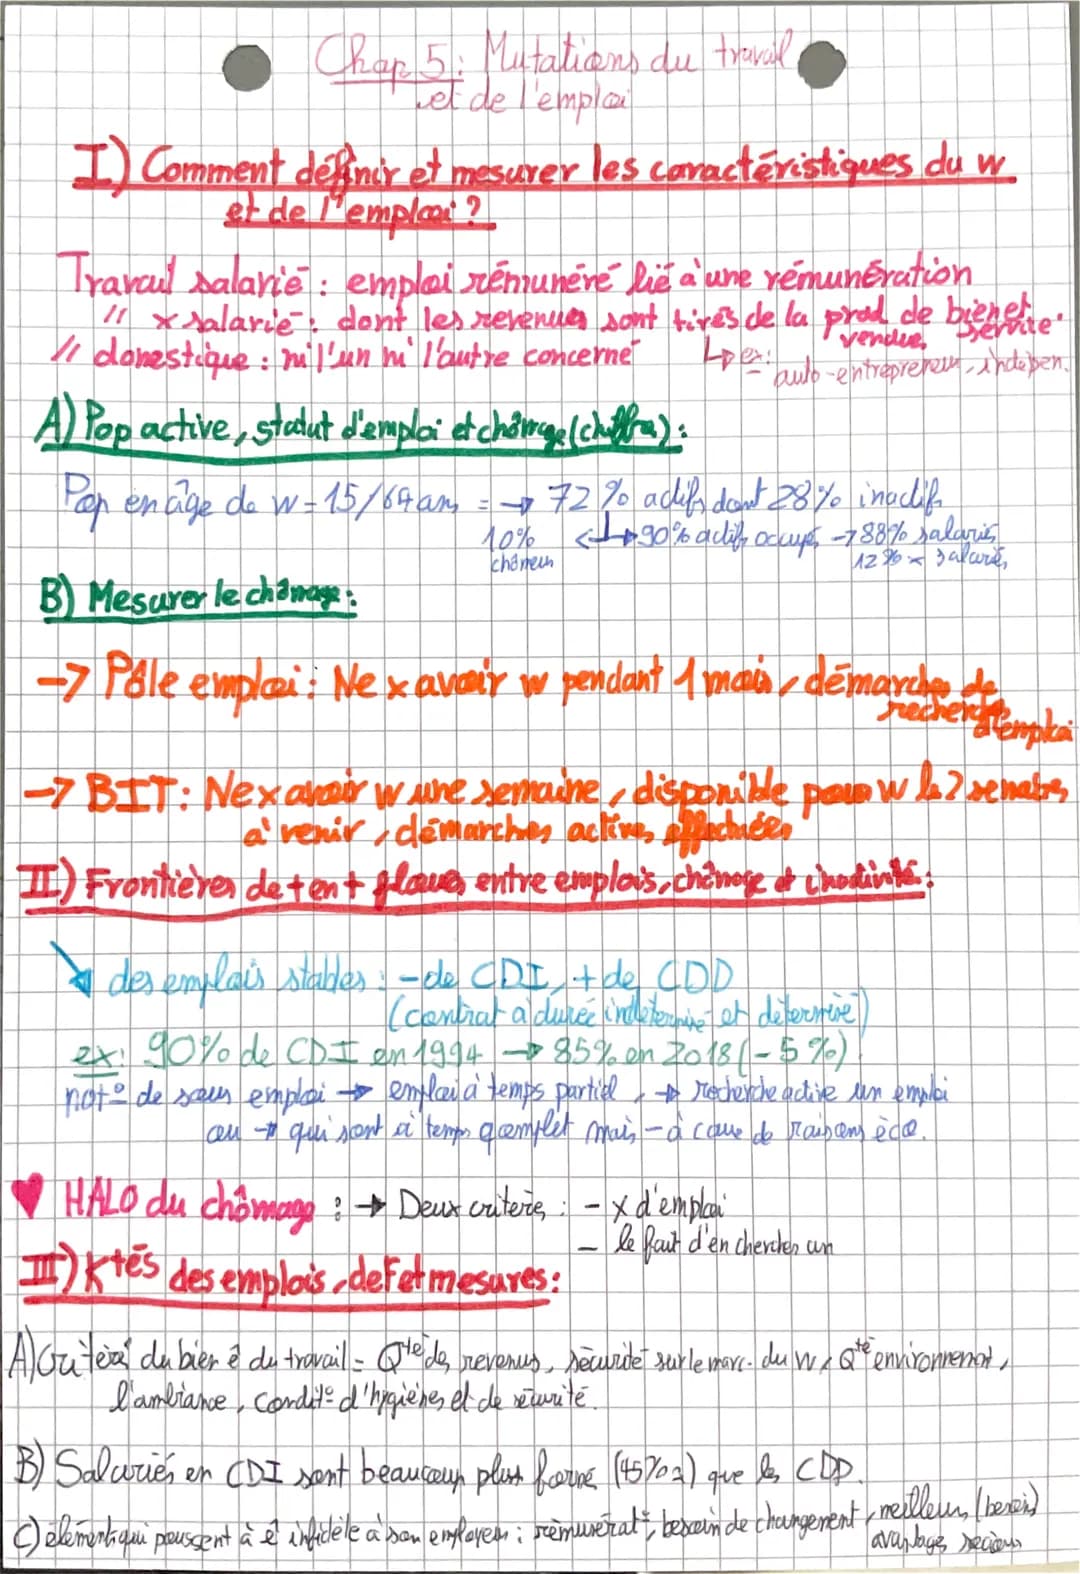 Chap 5 : Mutations du travail
et de l'emploi
I) Comment définir et mesurer les caractéristiques du w
et de l'emploi ?
Travail salarié : emploi rémunéré lié à une rémunération
// x salarié : dont les revenus sont tirés de la prod de bien et service
vendue.
// domestique : ni l'un ni l'autre concerné ↳ ex :
auto-entrepreneur, indépen.
A) Pop active, statut d'emploi et chômage (chiffra) :
Pop en âge de w = 15/64 ans = → 72 % actifs dont 28% inactifs
10% ↔ 90% actifs occupés → 88% salariés
chômeurs 12% x salariés
B) Mesurer le chômage :
→ Pôle emploi : Ne x avoir w pendant 1 mois, démarches de
recherche
d'emploi
→ BIT : Ne x avoir w une semaine, disponible pour w les 2 semaines
à venir, démarches actives effectuées
II) Frontières de + en + floues entre emplois, chômage et inactivité :
↘ des emplois stables : - de CDI, + de CDD
(contrat à durée indéterminé et déterminé)
ex : 90% de CDI en 1994 → 85% en 2018 (-5%)
not° de sous emploi → emploi à temps partiel, → recherche active un emploi
ou → qui sont à temps complet mais - à cause de raisons éco.
♥ HALO du chômage : → Deux critères : - x d'emploi
- le fait d'en chercher un
III) Ktés des emplois, def et mesures :
A) Critères du bien ê du travail = Qté des revenus, sécurité sur le marc. du w, Qté environnement,
l'ambiance, condit° d'hygiènes et de sécurité.
B) Salariés en CDI sont beaucoup plus formé (45% ) que les CDD.
C) éléments qui poussent à ê infidèle à son employeur : rémunérat°, besoin de changement, meilleurs (besoin)
avantages sociaux